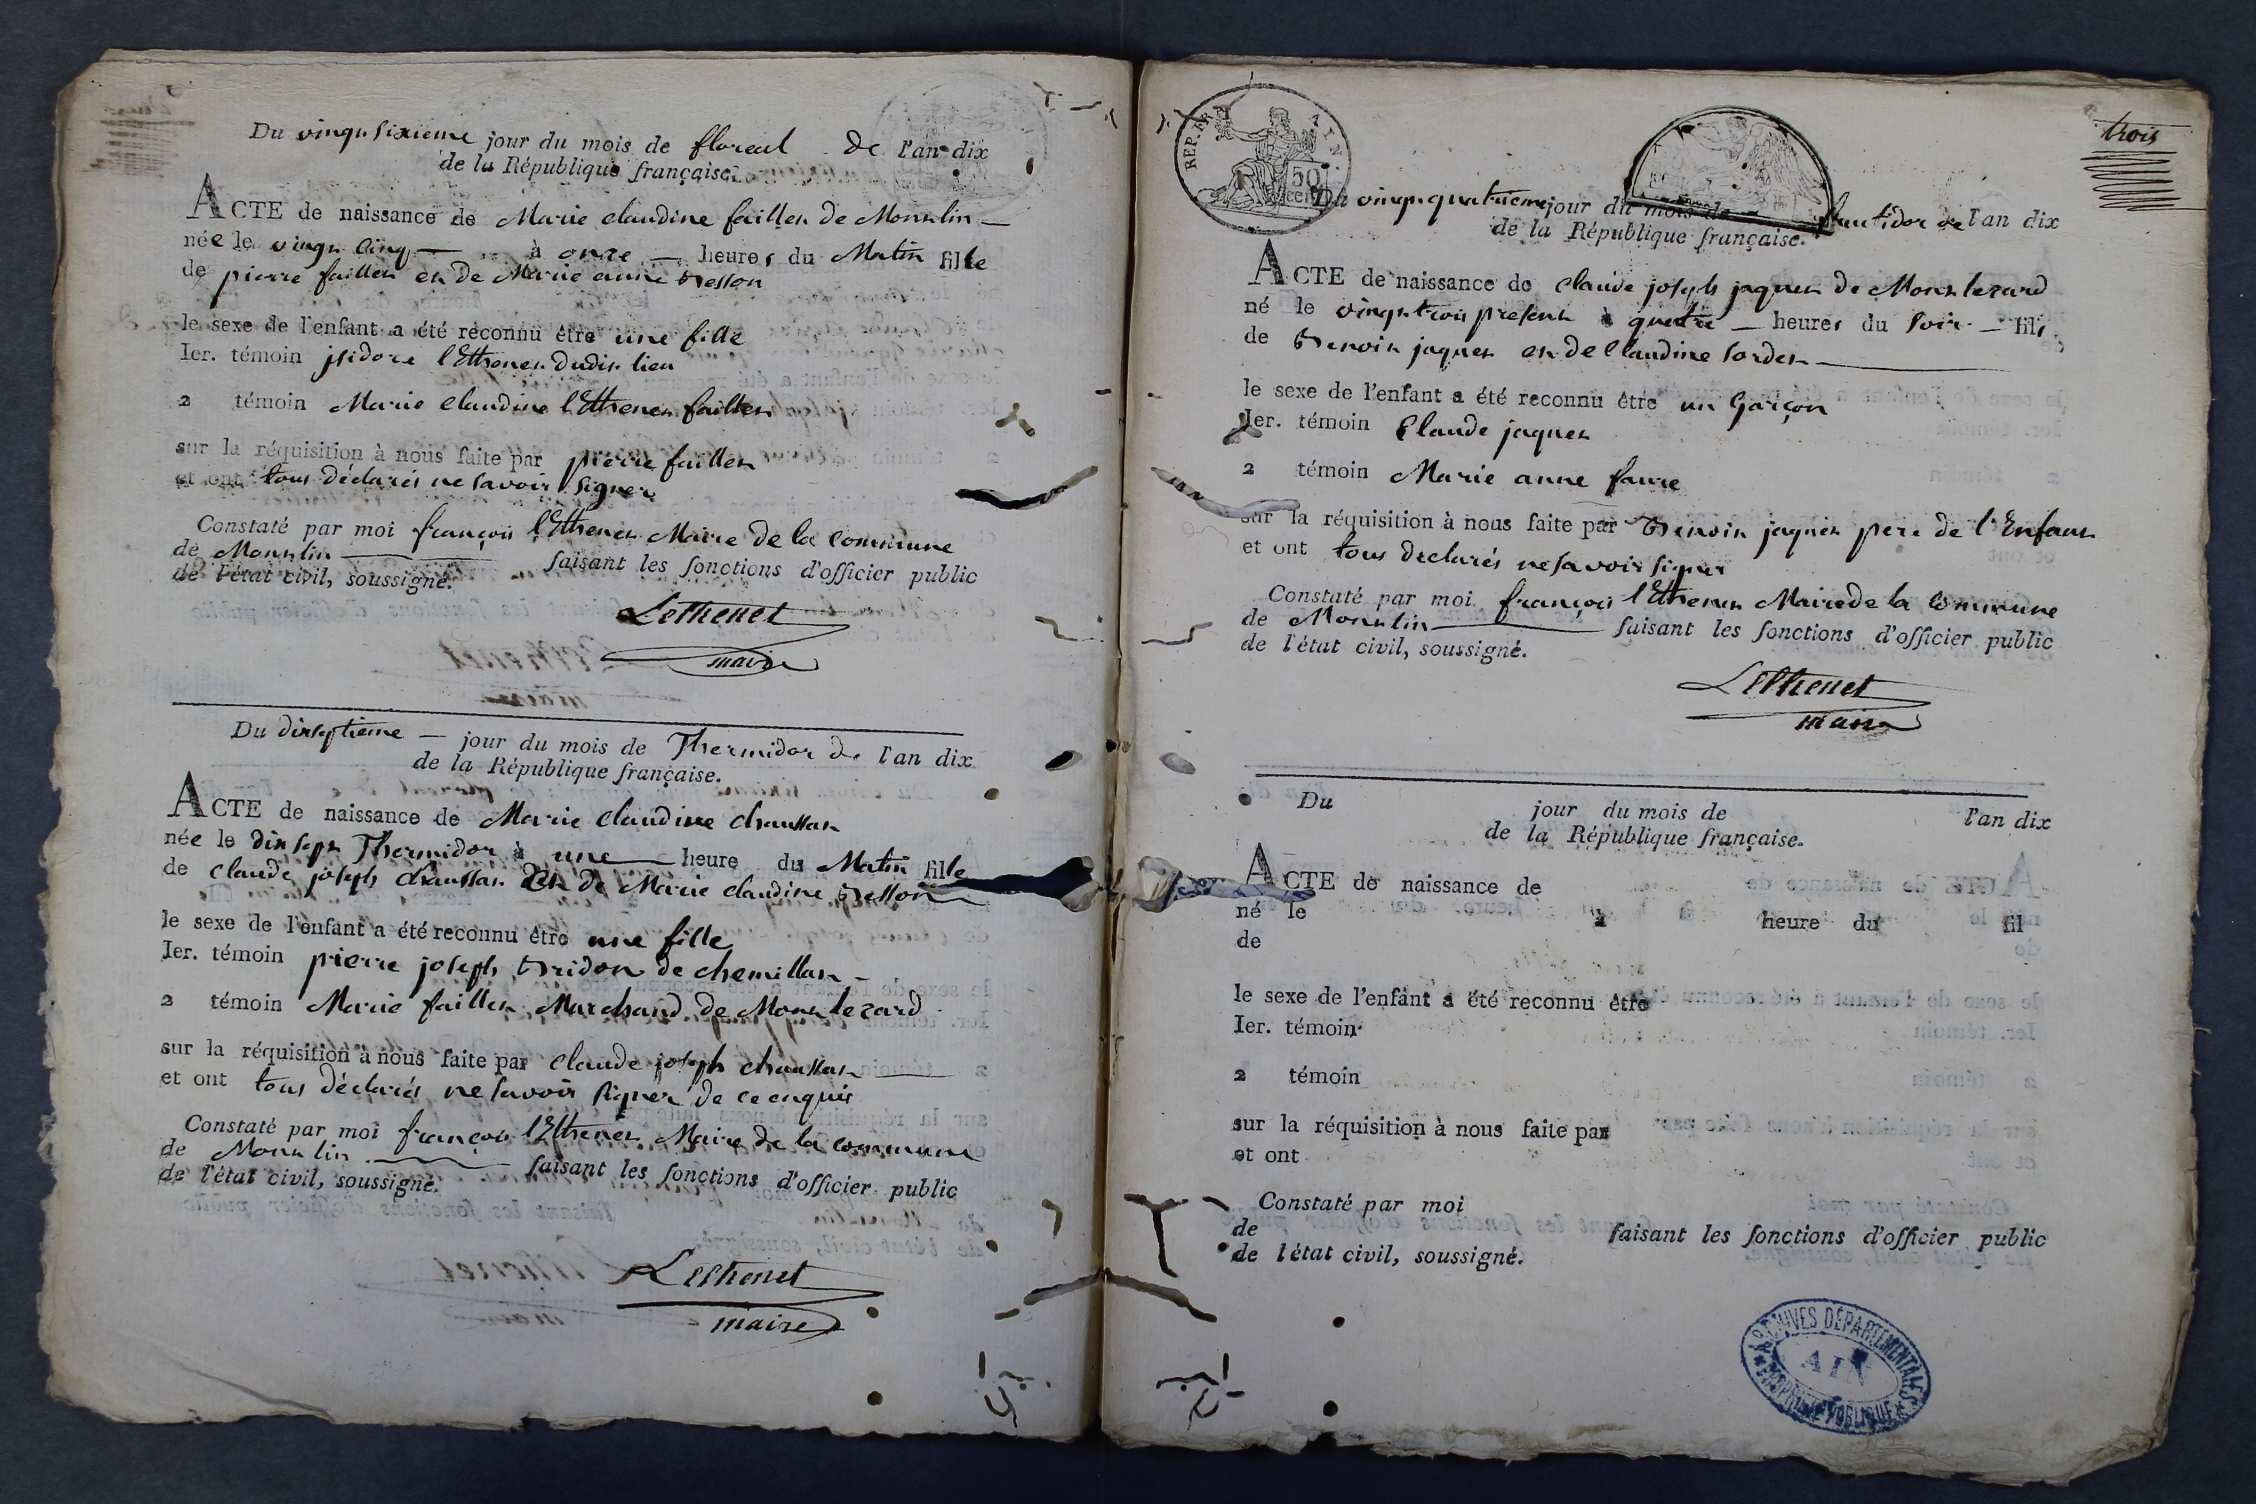 Du vingt sixieme jour du mois de floreal de l'an dix
de la République française.
ACTE de naissance de Marie claudine faillet de Montlin
née le vingt cinq à onze heures du Matin fille
de pierre faillet et de Marie anne Besson
le sexe de l'enfant a été reconnu être une fille
Ier. témoin isidore l'Ethenet dudit lieu
2 témoin Marie claudine l'Ethenet faillet
sur la réquisition à nous faite par pierre faillet
et ont tous déclarés ne savoir signer
Constaté par moi françois l'Ethenet Maire de la commune
de Montlin faisant les fonctions d'officier public
de l'état civil, soussigné.
Lethenet
maire
Du dixseptieme jour du mois de Thermidor de l'an dix
de la République française.
ACTE de naissance de Marie claudine chaussat
née le dixsept Thermidor à une heure du Matin fille
de claude joseph chaussat et de Marie claudine Besson
le sexe de l'enfant a été reconnu être une fille
Ier. témoin pierre joseph Bridon de chemillat
2 témoin Marie faillet Marchand de Montlezard
sur la réquisition à nous faite par claude joseph chaussat
et ont tous déclarés ne savoir signer de ce enquis
Constaté par moi françois l'Ethenet Maire de la commune
de Montlin faisant les fonctions d'officier public
de l'état civil, soussigné.
Lethenet
maire
trois
REP. FRA
AIN
50
cen
Du vingt quatrieme jour du mois de fructidor de l'an dix
de la République française.
ACTE de naissance de claude joseph jaquet de Montlezard
né le vingt trois present à quatre heures du soir fils
de Benoit jaquet et de Claudine sordet
le sexe de l'enfant a été reconnu être un Garçon
Ier. témoin Claude jaquet
2 témoin Marie anne faure
sur la réquisition à nous faite par Benoit jaquet pere de l'Enfant
et ont tous declarés ne savoir signer
Constaté par moi françois l'Ethenet Maire de la commune
de Montlin faisant les fonctions d'officier public
de l'état civil, soussigné.
Lethenet
maire
Du jour du mois de l'an dix
de la République française.
ACTE de naissance de
né le à heure du fil
de
le sexe de l'enfant a été reconnu être
Ier. témoin
2 témoin
sur la réquisition à nous faite par
et ont
Constaté par moi
de faisant les fonctions d'officier public
de l'état civil, soussigné.
ARCHIVES DÉPARTEMENTALES
AIN
PROPRIÉTÉ PUBLIQUE